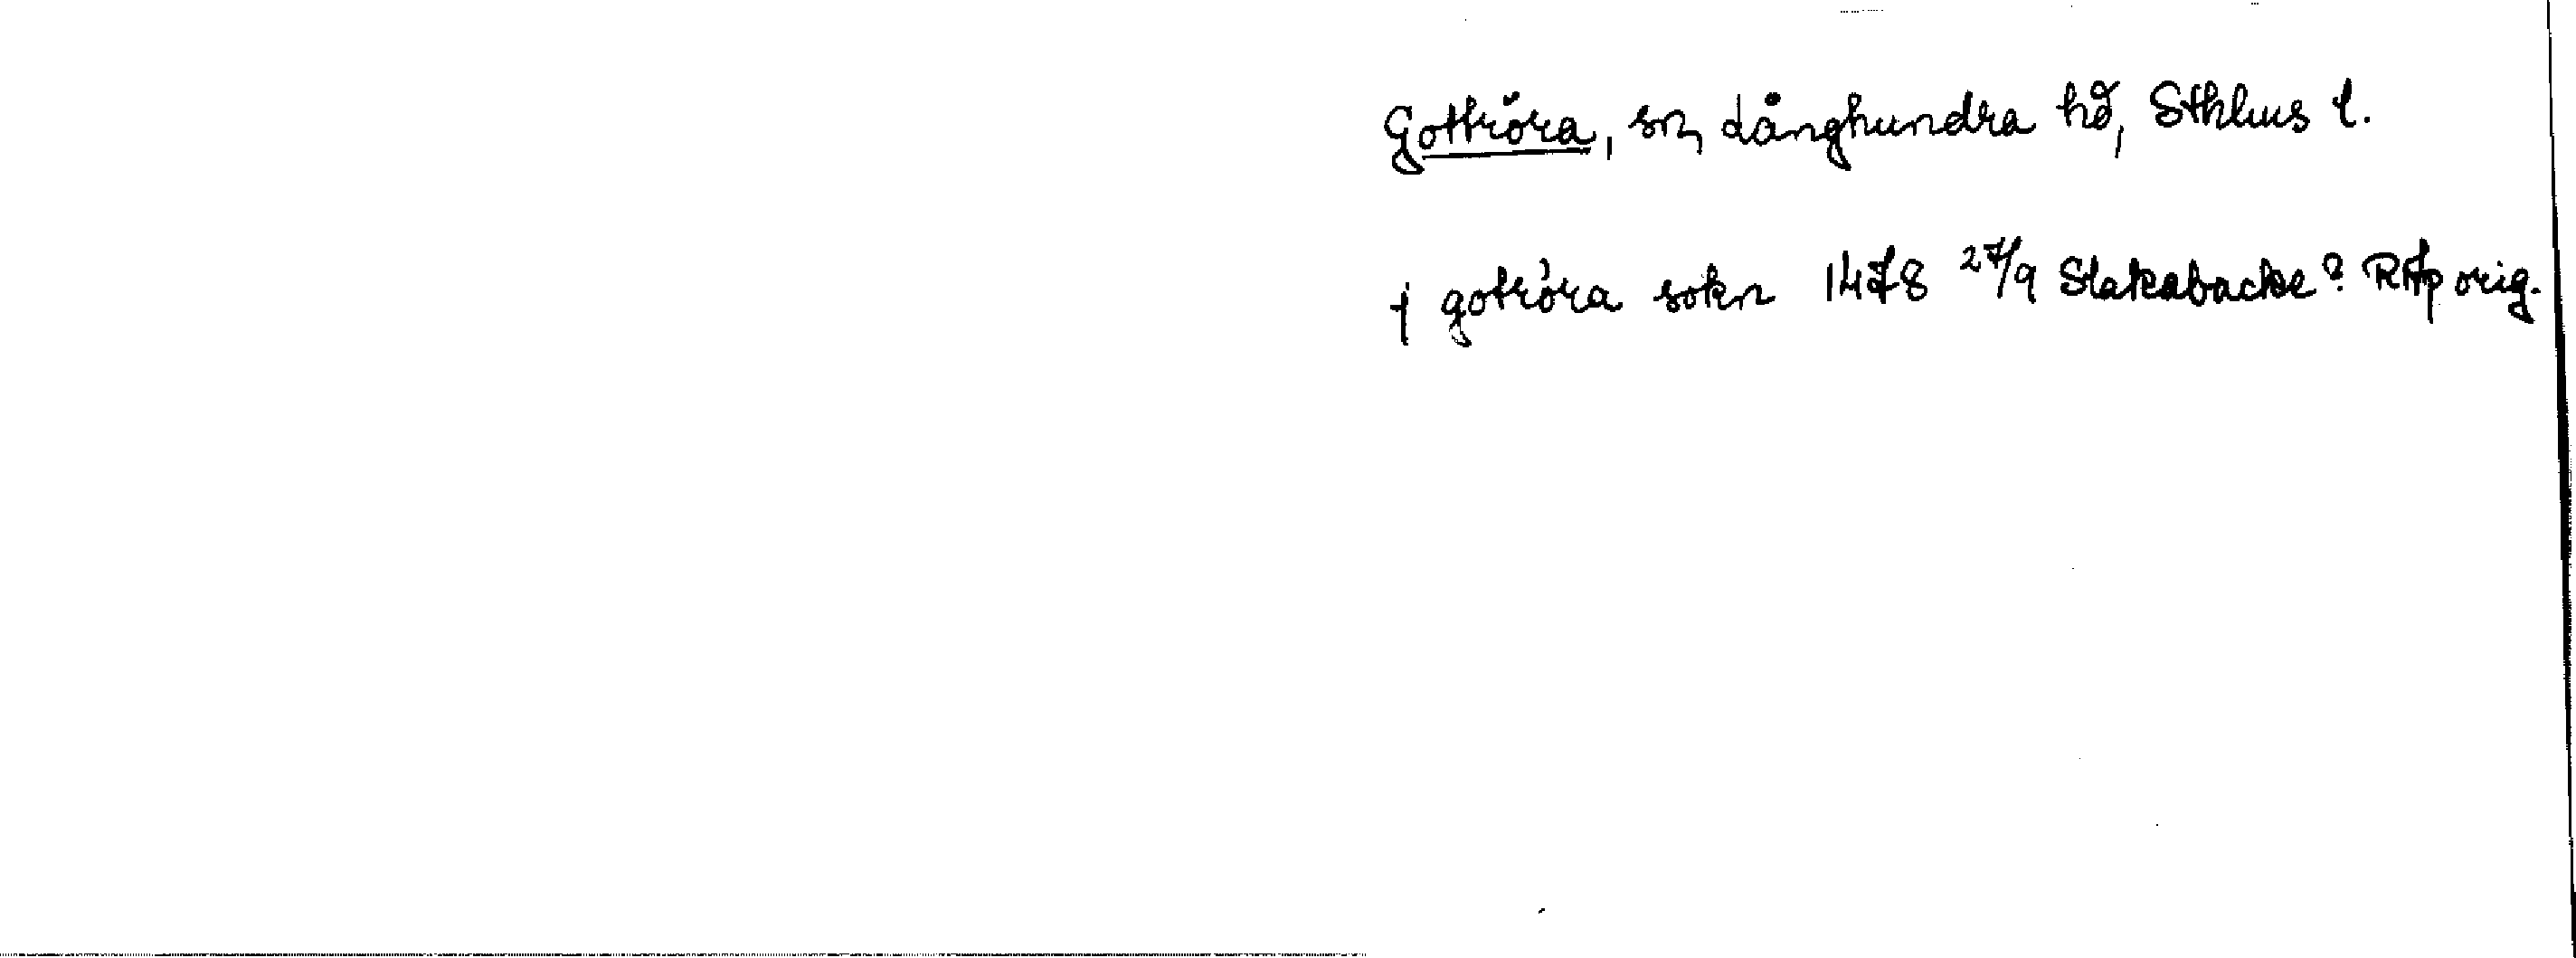 Gottröra, sn, Långhundra hd, Sthlms l.
j gotröra sokn 1478 27/9 Slakabacke? RAp orig.